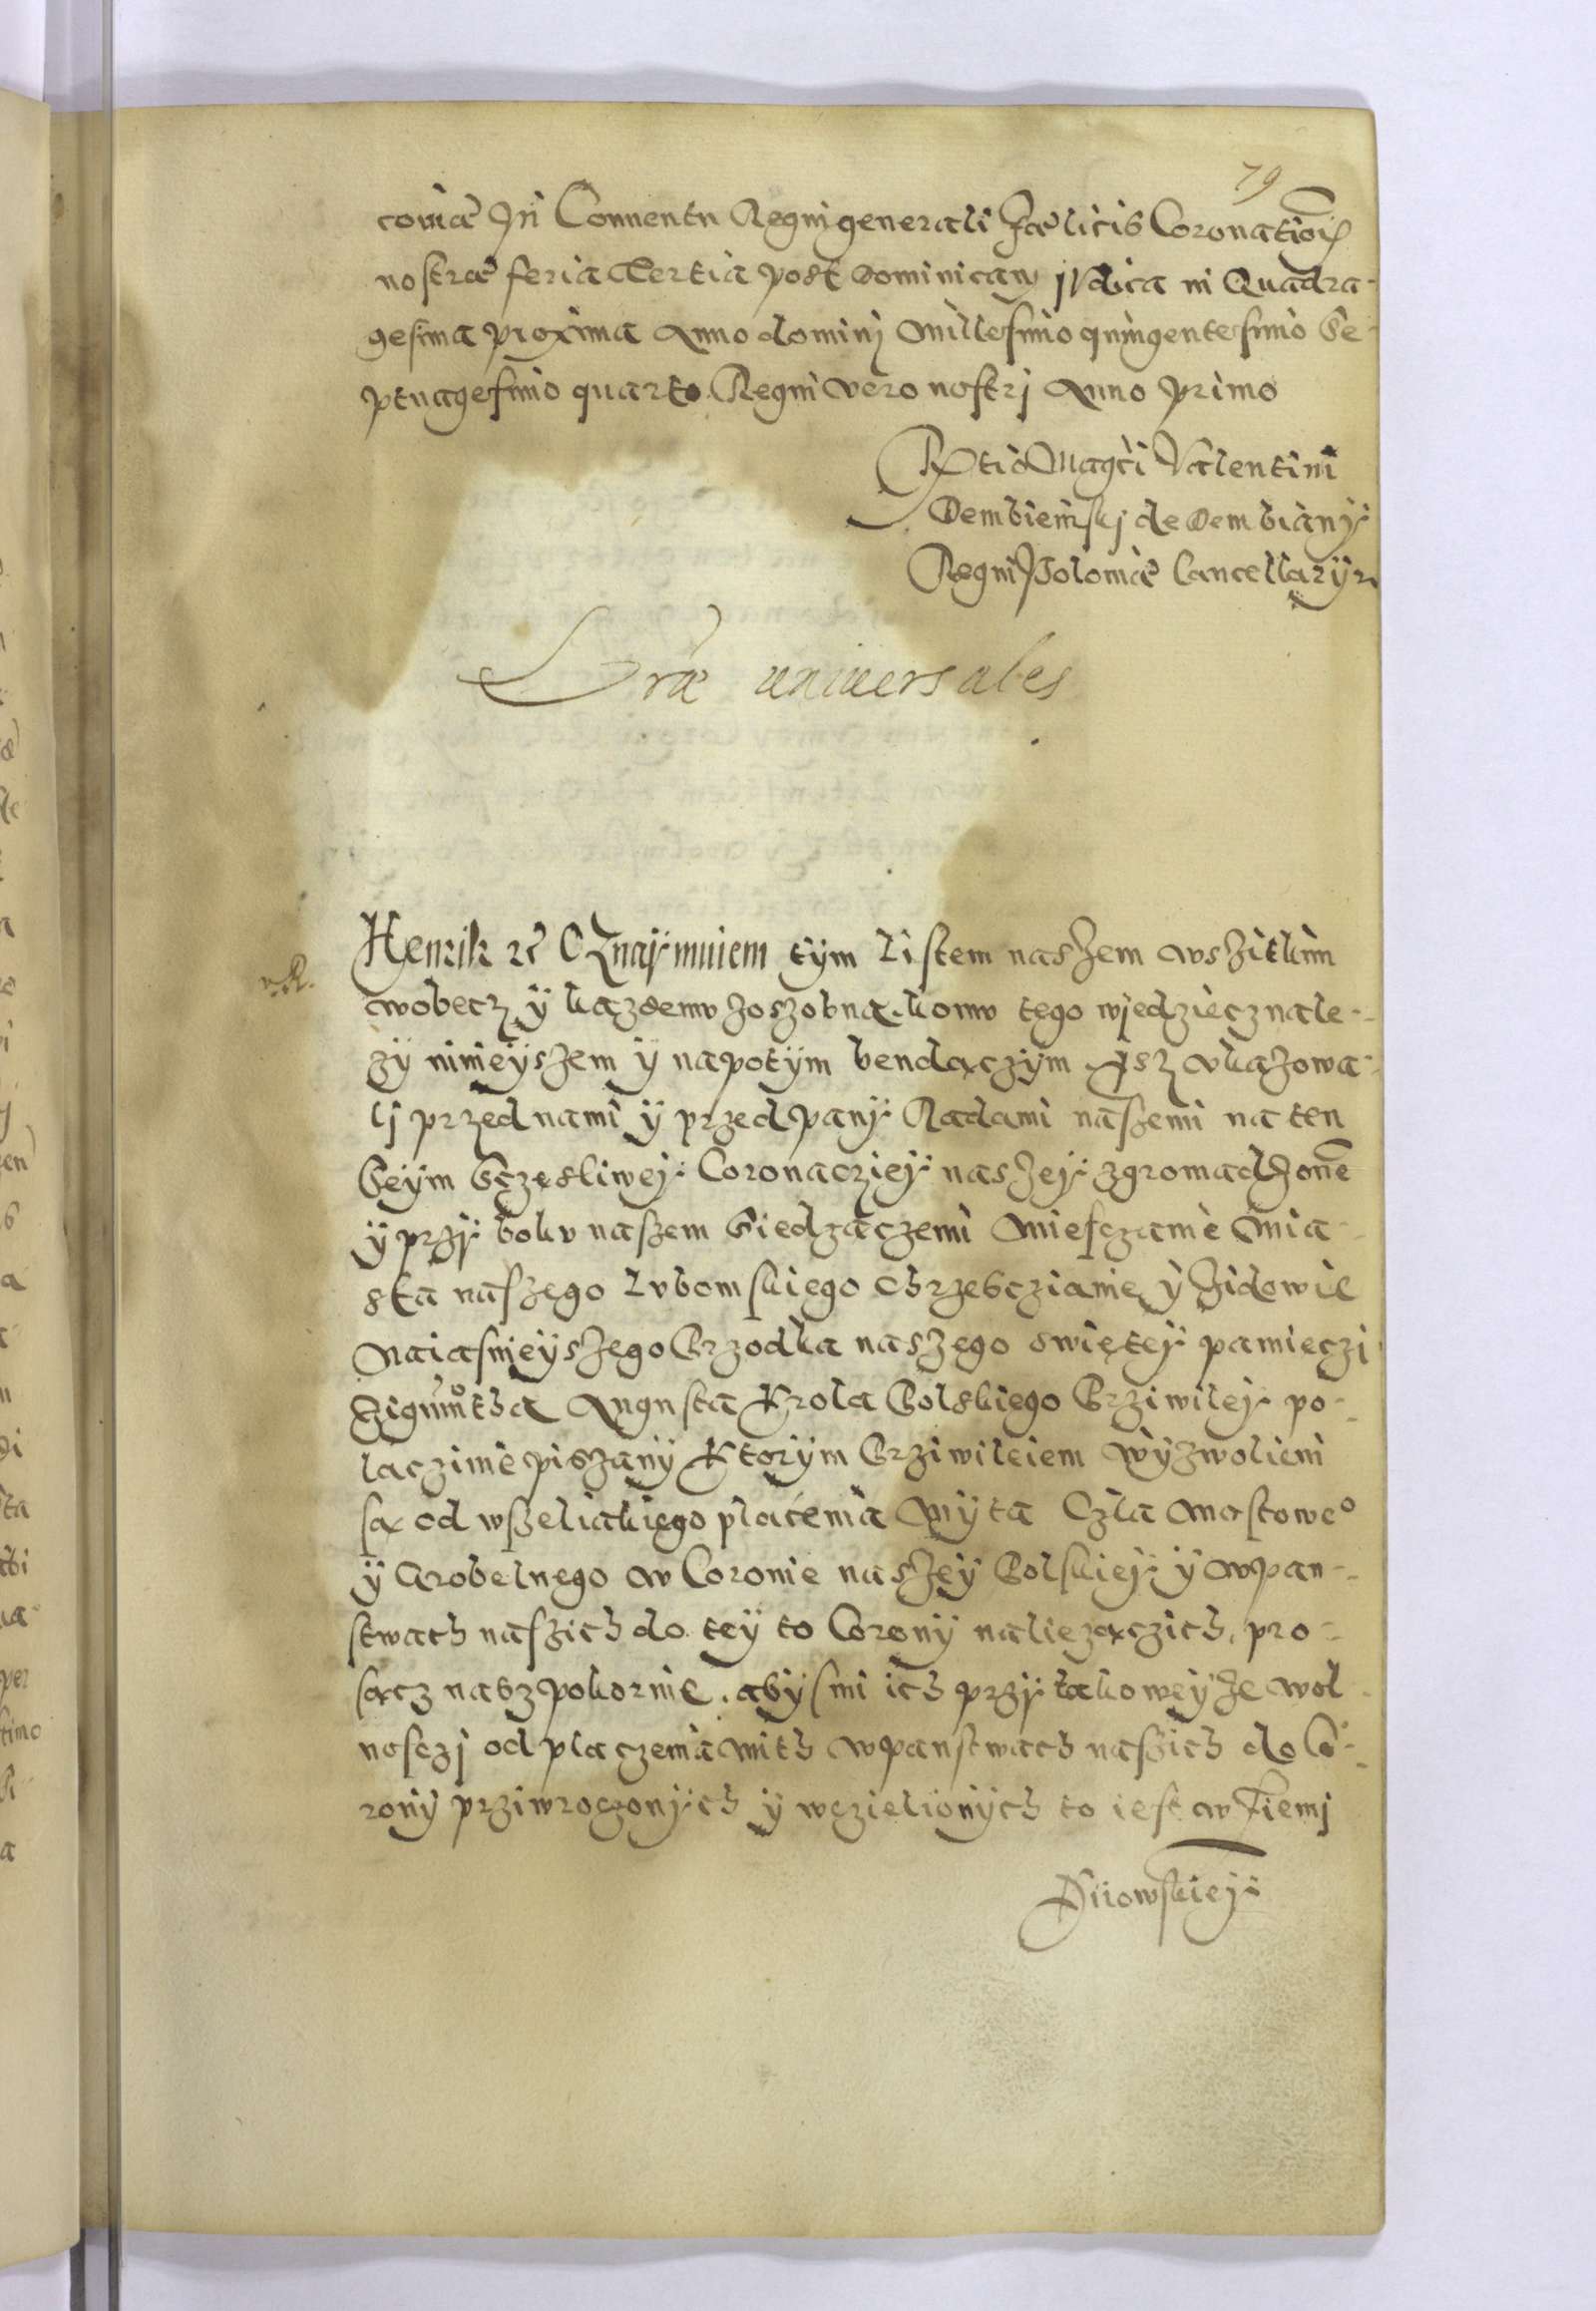 79
coviæ In Conuentu Regni generali Fælicis Coronationis
nostræ feria Tertia post Dominicam Judica in Quadra-
gesima proxima Anno dominj Millesimo quingentesimo Se-
ptuagesimo quarto Regni vero nostrj Anno primo
Rtio Magci Valentini
Dembienskj de Dembiany
Regni Poloniæ Cancellarÿ
Lræ uniuersales
Henrik rc Oznaÿmuiem tÿm Listem naszem wszitkim
wobecz ÿ kazdemv zoszobna komv tego wjedziecz nale-
zÿ nineÿszem ÿ napotÿm bendączÿm Isz vkazowa-
lj przed nami ÿ przed panÿ Radami naszemi na ten
Seÿm Sczesliweÿ Coronaczieÿ naszeÿ zgromadzone
ÿ przÿ bokv naszem Siedzączemi Miesczanie Mia-
sta naszego Lvbomskiego Chrzesczianie ÿ Zidowie
Naiasnieÿszego Przodka naszego swięteÿ pamieczi
Zigmtha Augusta Krola Polskiego Przywileÿ po-
laczinie piszanÿ Ktorÿm Prziwileiem wÿzwolieni
są od wszeliakiego placenia Mÿta Czla Mostoweo
ÿ Grobelnego w Coronie naszeÿ Polskieÿ ÿ wpan-
stwach naszich do teÿ to Coronÿ naliezączich, pro-
sącz nas zpokornie. abÿsmi ich przÿ takoweÿze wol
nosczj od placzenia mith wpanstwach naszich do Co-
ronÿ prziwroczonÿch ÿ wczielionÿch to iest w Ziemj
Kiiowskieÿ